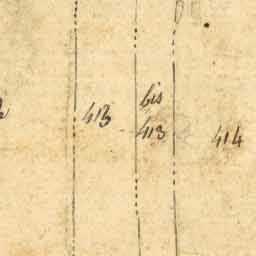 413
bis
413
414